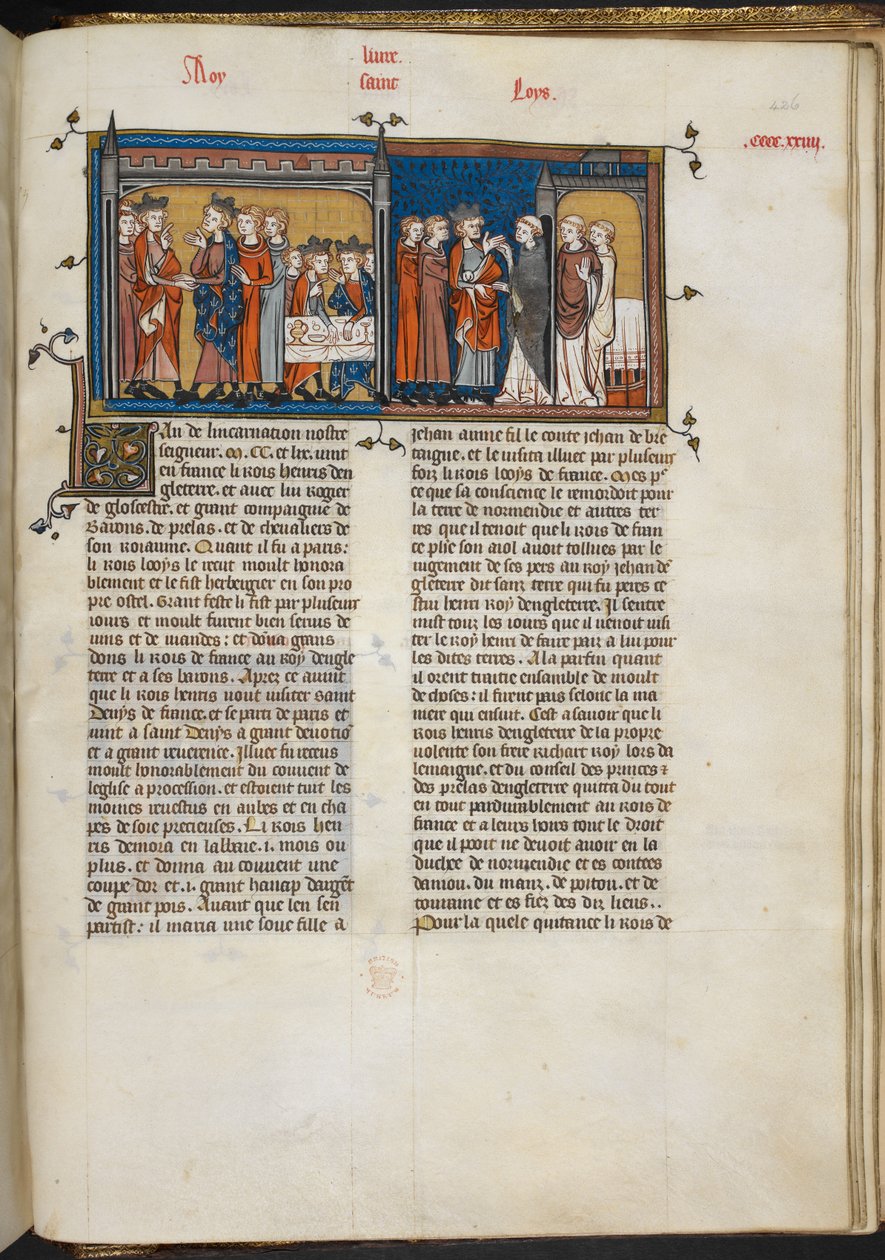 Roy
livre.
saint
Loys.
426
.CCCC.xxiiij.
Lan de lincarnation nostre
seigneur. M. CC. et lix. vint
en france li rois henris den
gleterre. et avec lui rogier
de glocestre. et grant compaignie de
Barons. de prelas. et de chevaliers de
son roiaume. Quant il fu a paris:
li rois looys le recut moult honora
blement et le fist herbergier en son pro
pre ostel. Grant feste li fist par plusieurs
iours et moult furent bien servis de
vins et de viandes: et dona grans
dons li rois de france au roy dengle
terre et a ses barons. Apres ce avint
que li rois henris vout visiter saint
Denys de france. et se parti de paris et
vint a saint Denys a grant devotio
et a grant reverence. Illuec fu receus
moult honorablement du couvent de
leglise a procession. et estoient tuit les
moines revestus en aubes et en cha
pes de soie precieuses. Li rois hen
ris demora en labbaie. i. mois ou
plus. et donna au couvent une
coupe dor et. i. grant hanap dargēt
de grant pois. Avant que len sen
partist: il maria une soue fille a
jehan ainne fil le conte jehan de bre
taigne. et le visita illuec par plusieurs
foiz li rois looys de france. Mes p
ce que sa conscience le remordoit pour
la terre de normendie et autres ter
res que il tenoit que li rois de fran
ce phe son aiol avoit tollues par le
iugement de ses pers au roy jehan dē
gleterre dit sanz terre qui fu peres ce
stui henri roy dengleterre. Il sentre
mist touz les iours que il venoit visi
ter le roy henri de faire paiz a lui pour
les dites terres. A la parfin quant
il orent traitie ensamble de moult
de choses: il firent pais selonc la ma
niere qui ensuit. Cest a savoir que li
rois henris dengleterre de la propre
volente son frere Richart roy lors da
lemaigne. et du conseil des princes et
des prelas dengleterre quitta du tout
en tout pardurablement au rois de
france et a leurs hoirs tout le droit
que il pooit ne devoit avoir en la
duchee de normendie et es contees
daniou. du manz. de poitou. et de
touraine et es fiez des diz lieus..
Pour la quele quitance li rois de
BRITISH
MUSEUM